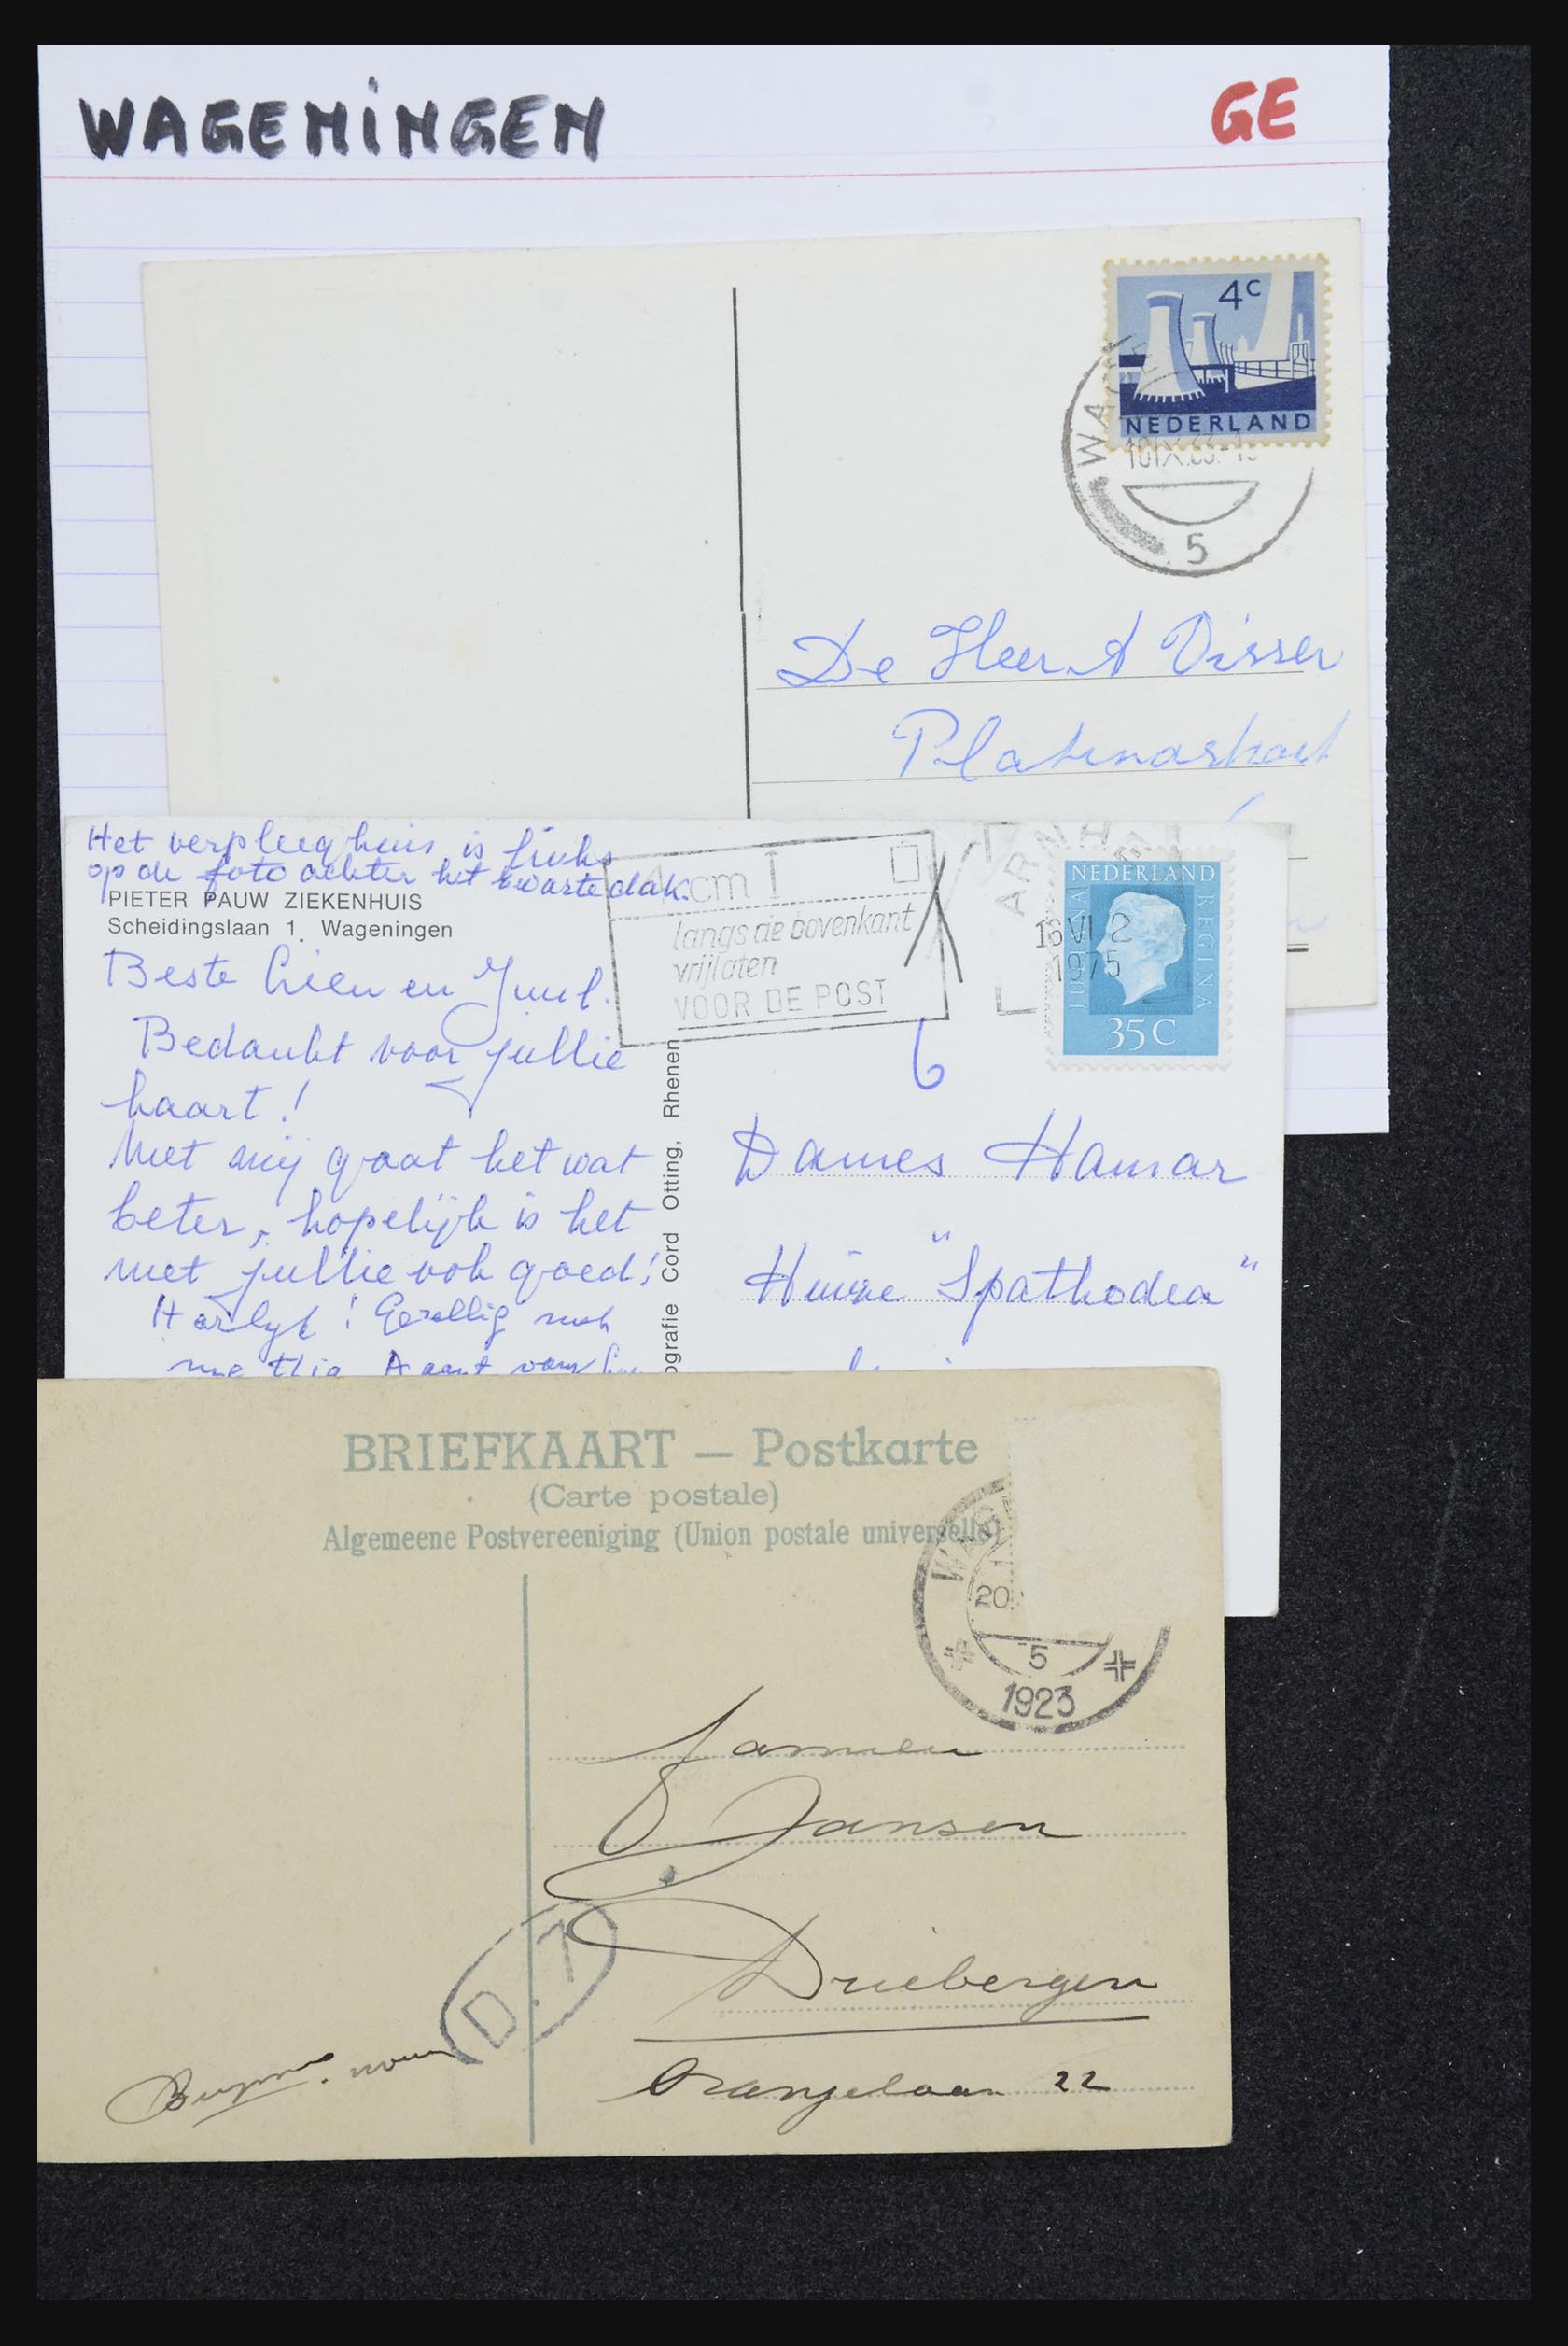 WAGENINGEN
GE
4c
NEDERLAND
WAGEN
5
De Heer A Visser
Platinastraat
Het verpleeghuis is links
op de foto achter het zwarte dak.
PIETER PAUW ZIEKENHUIS
Scheidingslaan 1, Wageningen
cm
langs de bovenkant
vrijlaten
VOOR DE POST
ARNHEM
16 VI 2
1975
NEDERLAND
JULIANA
REGINA
35 C
Beste Lien en Juul.
Bedankt voor jullie
kaart!
Met mij gaat het wat
beter, hopelijk is het
met jullie ook goed!
6
Dames Hamar
Huize "Spathodea"
ografie Cord Otting, Rhenen
BRIEFKAART — Postkarte
(Carte postale)
Algemeene Postvereeniging (Union postale universelle)
WAGE
20
5
1923
Jansen
Driebergen
Oranjelaan 22
D.7